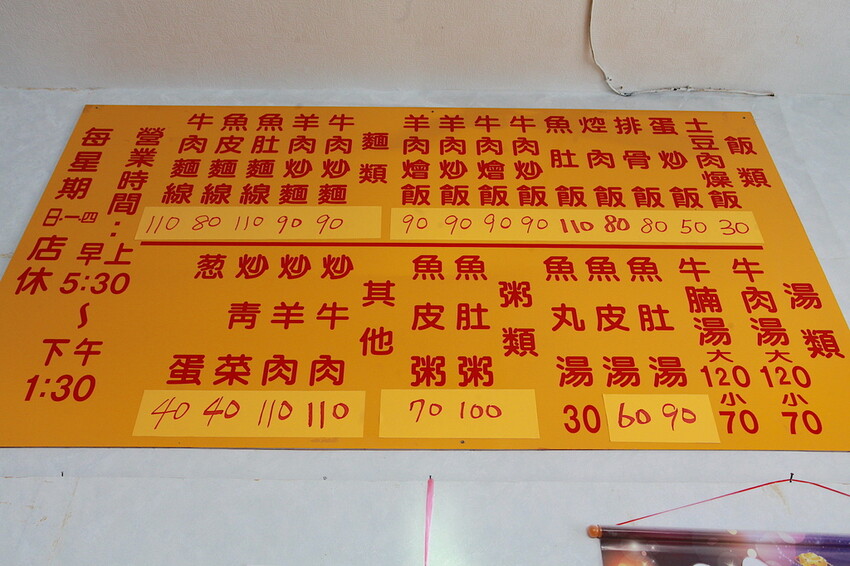 飯類
土豆肉燥飯 30
蛋炒飯 50
排骨飯 80
焢肉飯 80
魚肚飯 110
牛肉炒飯 90
牛肉燴飯 90
羊肉炒飯 90
羊肉燴飯 90
麵類
牛肉炒麵 90
羊肉炒麵 90
魚肚麵線 110
魚皮麵線 80
牛肉麵線 110
湯類
牛肉湯 大120 小70
牛腩湯 大120 小70
魚肚湯 90
魚皮湯 60
魚丸湯 30
粥類
魚肚粥 100
魚皮粥 70
其他
炒牛肉 110
炒羊肉 110
炒青菜 40
葱蛋 40
營業時間:
早上
5:30
~
下午
1:30
每星期
日一四
店休